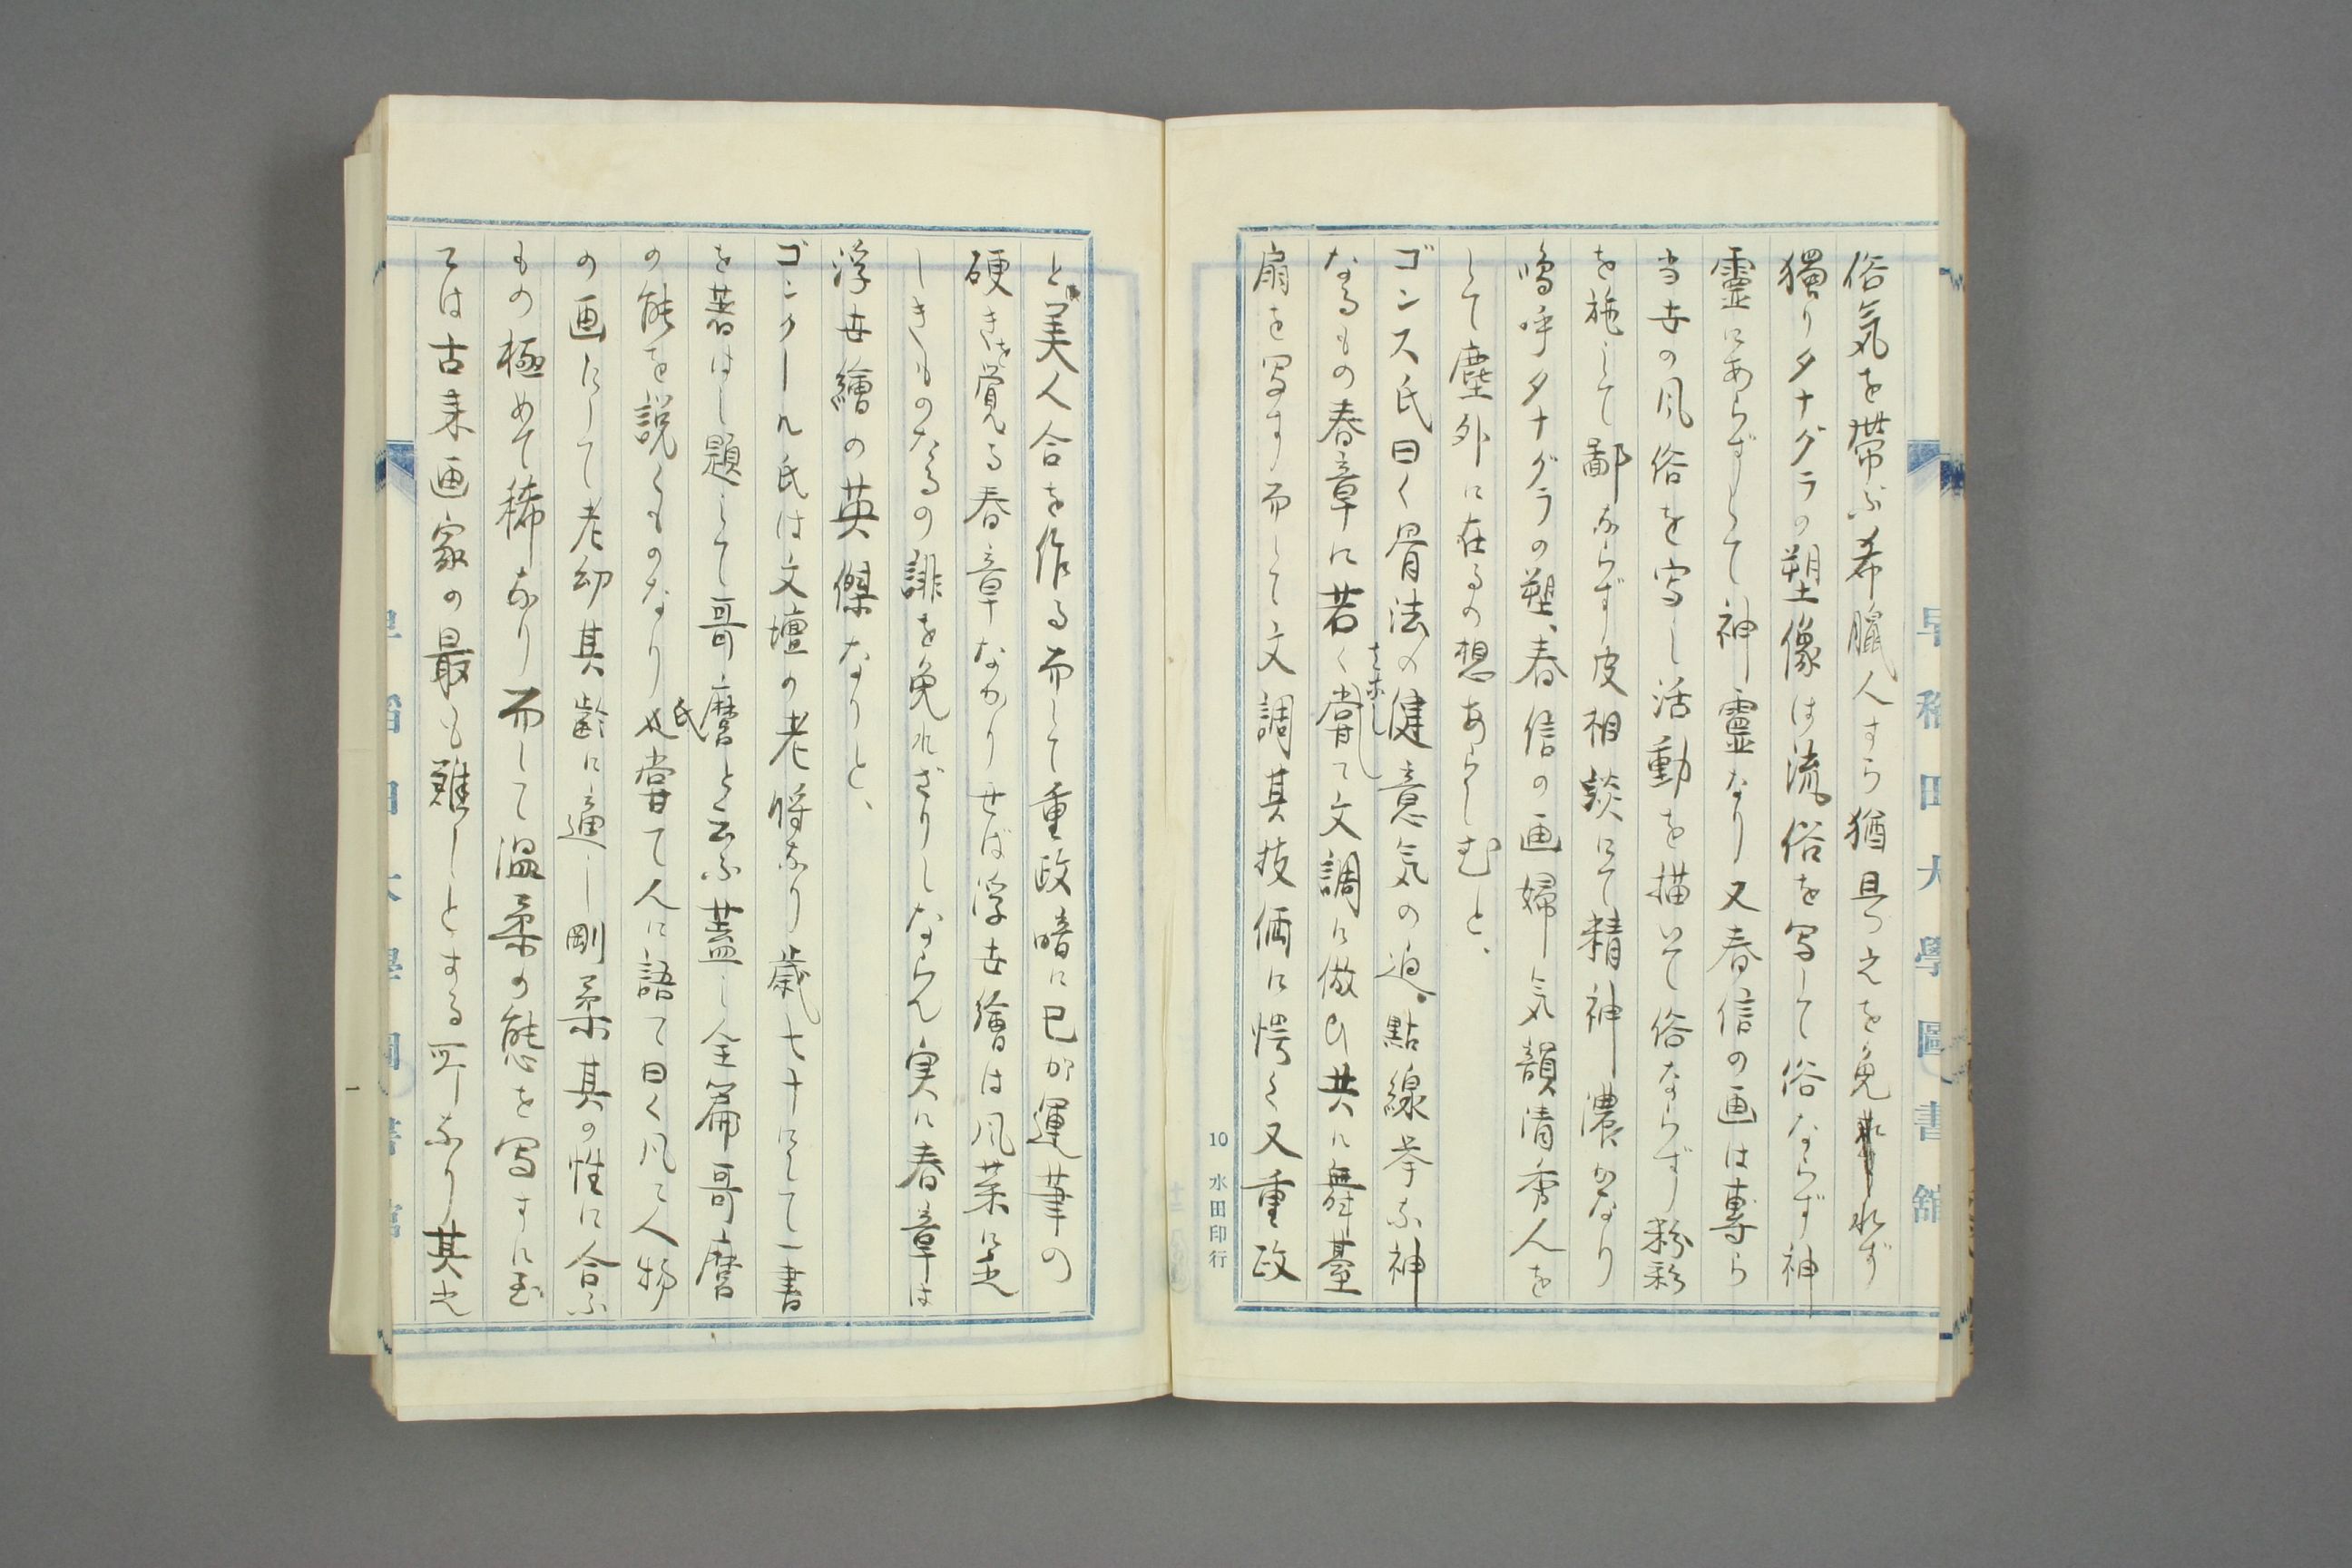 俗気を帯ぶ希臘人すら猶且つ之を免れず
獨りタナグラの塑像は流俗を写して俗ならず神
霊にあらずして神霊なり又春信の画は専ら
当世の風俗を写し活動を描いて俗ならず粉彩
を施して鄙ならず皮相談にて精神濃かなり
嗚呼タナグラの塑、春信の画婦気韻清秀人を
して塵外に在るの想あらしむと、
ゴンス氏曰く骨法の健意気の迫點線挙ふ神
なるもの春章に若く嘗て文調に倣ひ共に舞臺
扇を写す而して文調其技倆に愕く又重政
と美人合を作る而して重政暗に已が運筆の
硬きを覚る春章なかりせば浮世繪は風葉に乏
しきものたるの誹を免れざりしならん実に春章は
浮世繪の英傑なりと、
ゴンクール氏は文壇の老将なり歳七十にして一書
を著はし題して哥麿と云ふ蓋し全篇哥麿
の能を説くものなり氏嘗て人に語て曰く凡そ人物
の画にして老幼其齢に適し剛柔其の性に合ふ
もの極めて稀なり而して温柔の態を写すに至
ては古来画家の最も難しとする所なり其也
10 水田印行
早稲田大學圖書館